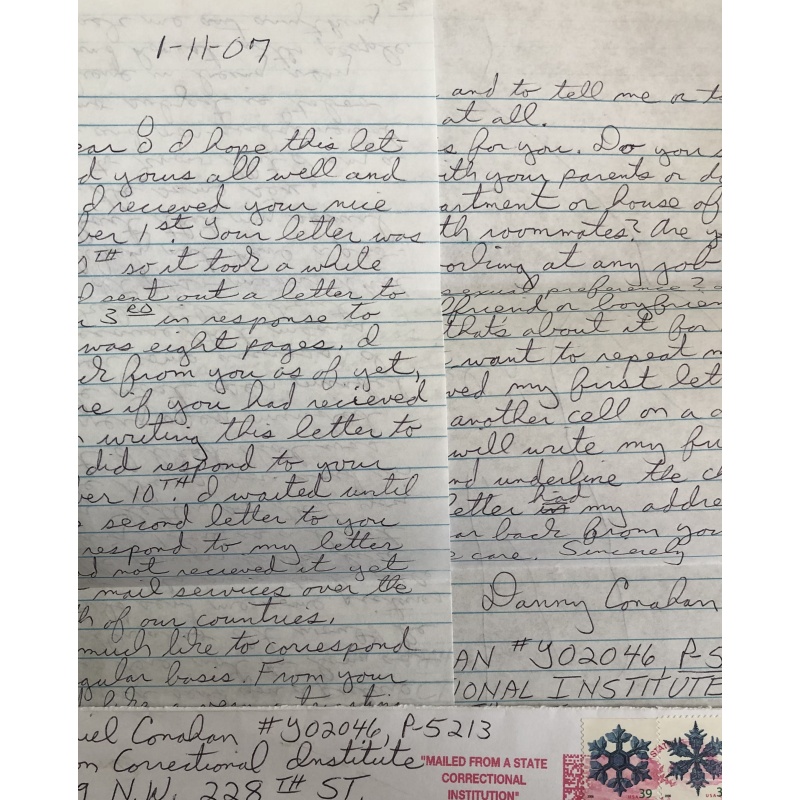 1-11-07
ear
I hope this let
d yours all well and
I recieved your nice
ber 1st. Your letter was
TH so it took a while
I sent out a letter to
3RD in response to
was eight pages. I
from you as of yet,
e if you had recieved
writing this letter to
did respond to your
ber 10TH. I waited until
second letter to you
respond to my letter
d not recieved it yet
mail services over the
h of our countries.
much like to correspond
gular basis. From your
and to tell me or t
at all.
s for you. Do you
ith your parents or d
artment or house of
th roommates? Are y
orking at any job
sexual preference?
lfriend or boyfrien
that's about it for
want to repeat m
ved my first let
another cell on a
will write my fu
nd underline the c
etter had my addre
ar back from you
care. Sincerely
Danny Conahan
AN #Y02046, P-5
IONAL INSTITUTE
iel Conahan #Y02046, P-5213
on Correctional Institute
9 N.W. 228TH ST.
"MAILED FROM A STATE
CORRECTIONAL
INSTITUTION"
39
USA